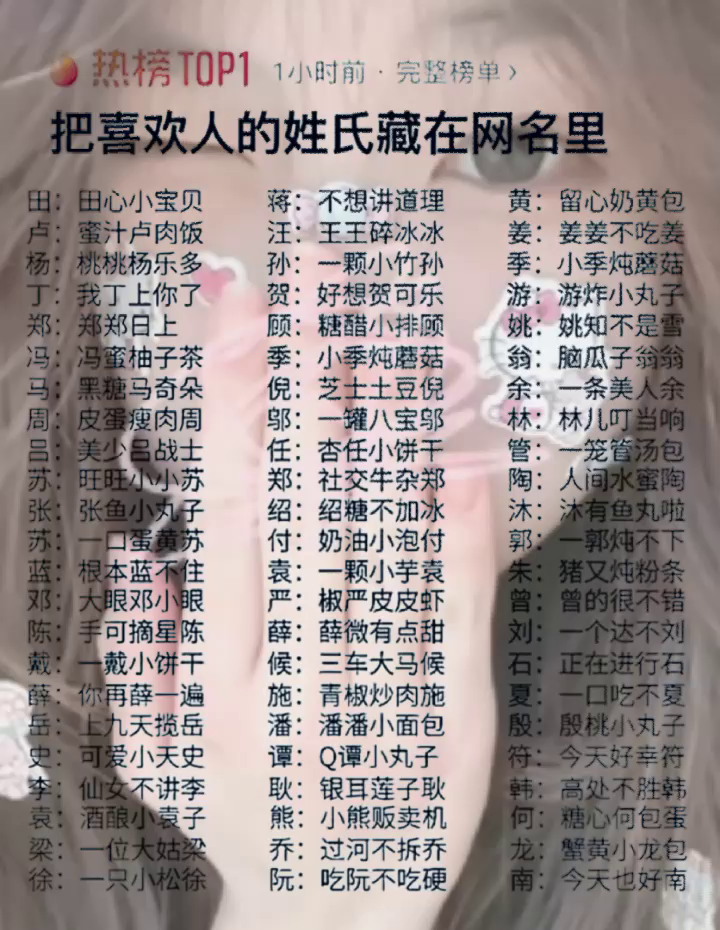 热榜TOP1 1小时前 · 完整榜单 >
把喜欢人的姓氏藏在网名里
田：田心小宝贝
卢：蜜汁卢肉饭
杨：桃桃杨乐多
丁：我丁上你了
郑：郑郑日上
冯：冯蜜柚子茶
马：黑糖马奇朵
周：皮蛋瘦肉周
吕：美少吕战士
苏：旺旺小小苏
张：张鱼小丸子
苏：一口蛋黄苏
蓝：根本蓝不住
邓：大眼邓小眼
陈：手可摘星陈
戴：一戴小饼干
薛：你再薛一遍
岳：上九天揽岳
史：可爱小天史
李：仙女不讲李
袁：酒酿小袁子
梁：一位大姑梁
徐：一只小松徐
蒋：不想讲道理
汪：王王碎冰冰
孙：一颗小竹孙
贺：好想贺可乐
顾：糖醋小排顾
季：小季炖蘑菇
倪：芝士土豆倪
邬：一罐八宝邬
任：杏任小饼干
郑：社交牛杂郑
绍：绍糖不加冰
付：奶油小泡付
袁：一颗小芋袁
严：椒严皮皮虾
薛：薛微有点甜
候：三车大马候
施：青椒炒肉施
潘：潘潘小面包
谭：Q谭小丸子
耿：银耳莲子耿
熊：小熊贩卖机
乔：过河不拆乔
阮：吃阮不吃硬
黄：留心奶黄包
姜：姜姜不吃姜
季：小季炖蘑菇
游：游炸小丸子
姚：姚知不是雪
翁：脑瓜子翁翁
余：一条美人余
林：林儿叮当响
管：一笼管汤包
陶：人间水蜜陶
沐：沐有鱼丸啦
郭：一郭炖不下
朱：猪又炖粉条
曾：曾的很不错
刘：一个达不刘
石：正在进行石
夏：一口吃不夏
殷：殷桃小丸子
符：今天好幸符
韩：高处不胜韩
何：糖心何包蛋
龙：蟹黄小龙包
南：今天也好南